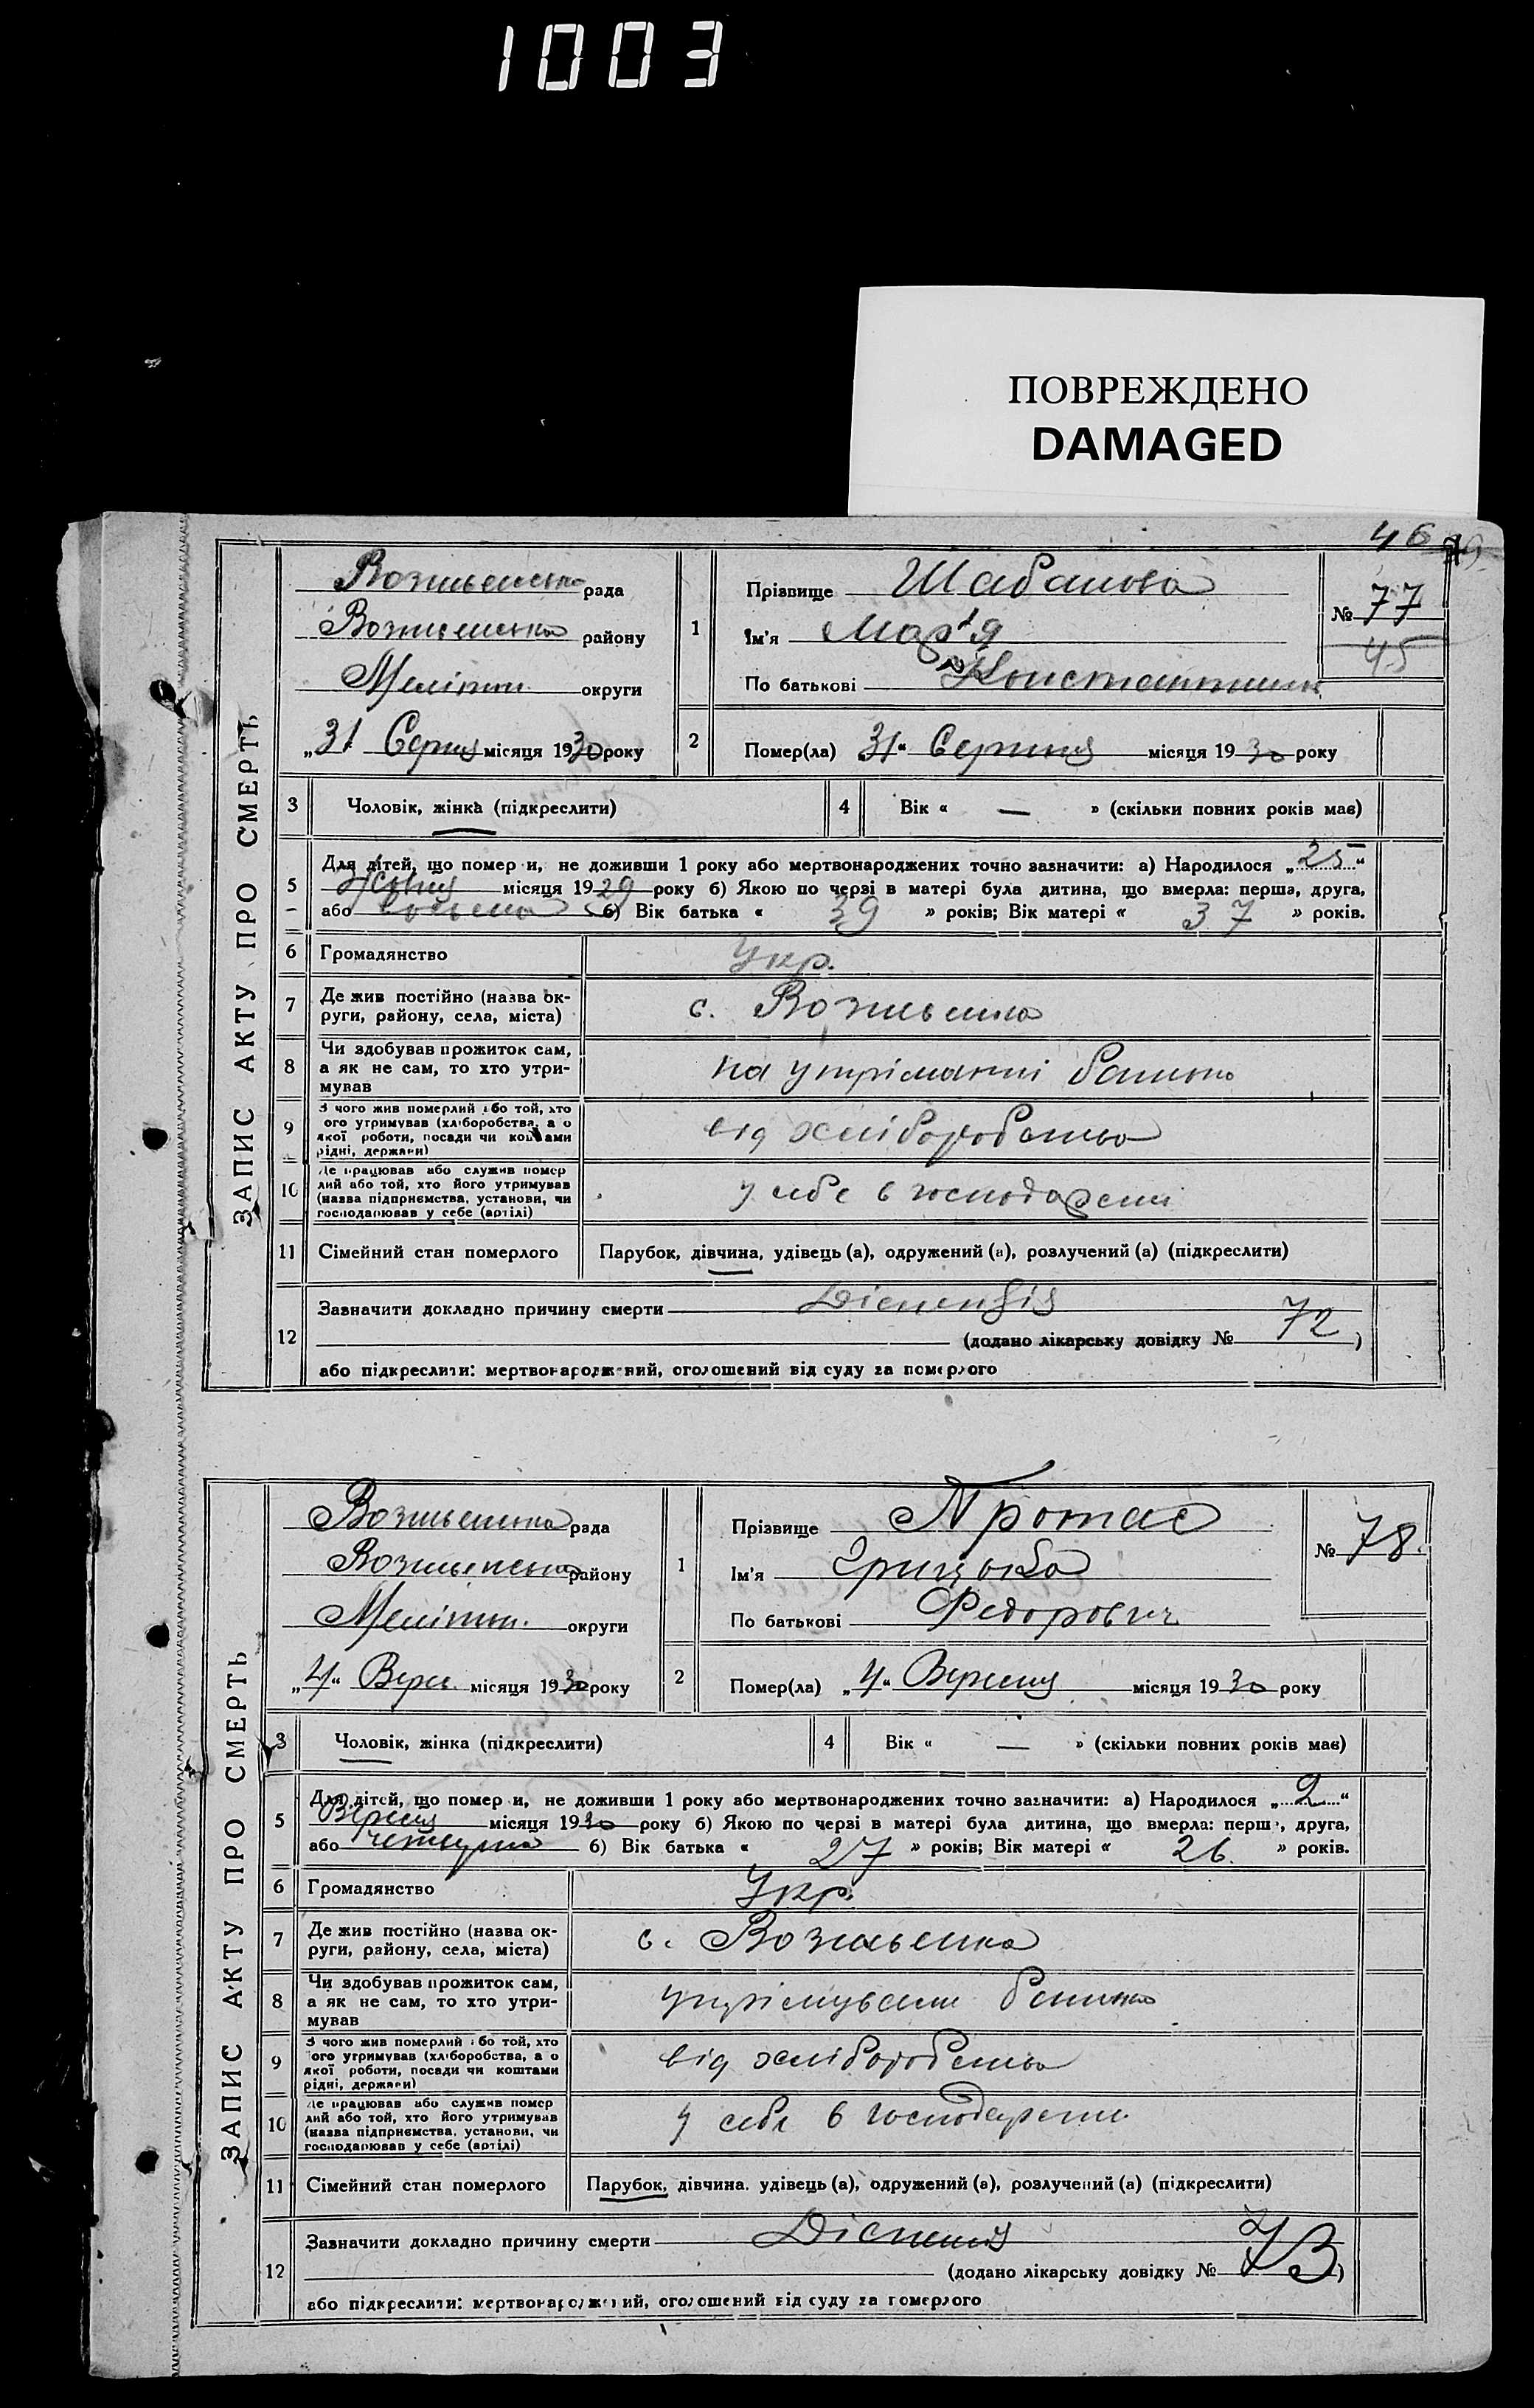 1003
ПОВРЕЖДЕНО
DAMAGED
46
ЗАПИС АКТУ ПРО СМЕРТЬ
рада
району
Меліттт. округи
„31 Серпня місяця 1930 року
1
Прізвище Шабанова
Ім'я Мар'я
По батькові
№ 77
45
2 Помер(ла) 31“ Серпня місяця 1930 року
3 Чоловік, жінка (підкреслити)
4 Вік « — » (скільки повних років має)
5 Для дітей, що помер и, не доживши 1 року або мертвонароджених точно зазначити: а) Народилося „25“
місяця 1929 року б) Якою по черзі в матері була дитина, що вмерла: перша, друга,
або восьма б) Вік батька « 39 » років; Вік матері « 37 » років.
6 Громадянство Укр.
7 Де жив постійно (назва ок-
руги, району, села, міста) с. Вознесенка
8 Чи здобував прожиток сам,
а як не сам, то хто утри-
мував
на утріманні батька
9 З чого жив померлий або той, хто
ого утримував (хліборобства, а о
якої роботи, посади чи коштами
рідні, держави)
від хліборобства
10 Де працював або служив помер
лий або той, хто його утримував
(назва підприємства, установи, чи
господарював у себе (артілі)
у себе в господарстві
11 Сімейний стан померлого Парубок, дівчина, удівець (а), одружений (а), розлучений (а) (підкреслити)
12 Зазначити докладно причину смерти
(додано лікарську довідку № 72)
або підкреслити: мертвонароджений, оголошений від суду за померлого
ЗАПИС АКТУ ПРО СМЕРТЬ
рада
району
округи
„4“ Верес. місяця 1930 року
1
Прізвище Протас
Ім'я Грицько
По батькові Федорович
№ 78.
2 Помер(ла) „4“ Вересня місяця 1930 року
3 Чоловік, жінка (підкреслити)
4 Вік « — » (скільки повних років має)
5 Для дітей, що помер и, не доживши 1 року або мертвонароджених точно зазначити: а) Народилося „2“
Вересня місяця 1930 року б) Якою по черзі в матері була дитина, що вмерла: перша, друга,
або б) Вік батька « 27 » років; Вік матері « 26. » років.
6 Громадянство Укр.
7 Де жив постійно (назва ок-
руги, району, села, міста) с. Вознесенка
8 Чи здобував прожиток сам,
а як не сам, то хто утри-
мував
батько
9 З чого жив померлий або той, хто
ого утримував (хліборобства, а о
якої роботи, посади чи коштами
рідні, держави)
від хліборобства
10 Де працював або служив помер
лий або той, хто його утримував
(назва підприємства, установи, чи
господарював у себе (артілі)
у себе в господарстві
11 Сімейний стан померлого Парубок, дівчина, удівець (а), одружений (а), розлучений (а) (підкреслити)
12 Зазначити докладно причину смерти
(додано лікарську довідку № 73)
або підкреслити: мертвонароджений, оголошений від суду за померлого